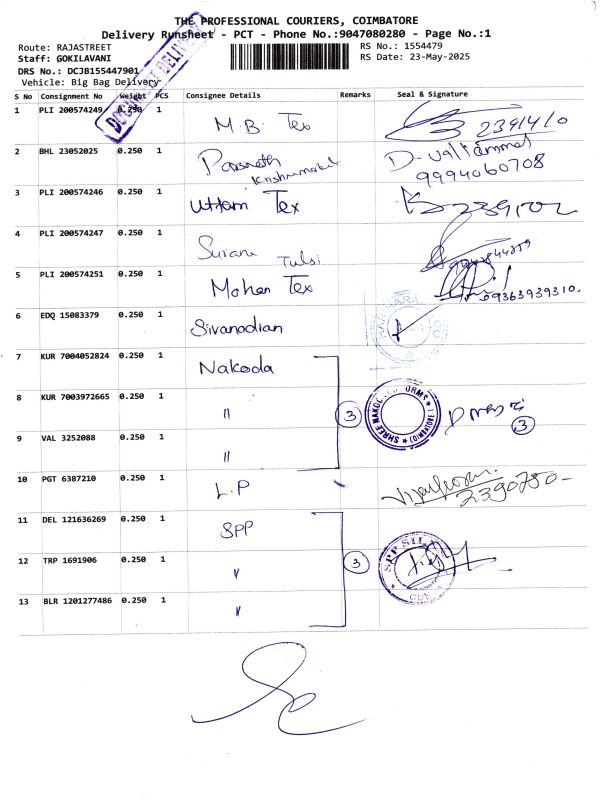 THE PROFESSIONAL COURIERS, COIMBATORE
Delivery Runsheet - PCT - Phone No.:9047080280 - Page No.:1
Route: RAJASTREET
RS No.: 1554479
Staff: GOKILAVANI
RS Date: 23-May-2025
DRS No.: DCJB155447901
Vehicle: Big Bag Delivery
S No Consignment No Weight PCS Consignee Details Remarks Seal & Signature
1 PLI 200574249 0.250 1 M.B. Tex 2391410
2 BHL 23052025 0.250 1 Parsnath D. valliammal
Krishnamarket 9994060708
3 PLI 200574246 0.250 1 Uttam Tex
4 PLI 200574247 0.250 1 Tulsi
5 PLI 200574251 0.250 1 Mohan Tex 09363939310.
6 EDQ 15083379 0.250 1 Sivanadian
7 KUR 7004052824 0.250 1 Nakoda
8 KUR 7003972665 0.250 1 " 3
3
9 VAL 3252088 0.250 1 "
10 PGT 6387210 0.250 1 L.P 2390780-
11 DEL 121636269 0.250 1 SPP
12 TRP 1691906 0.250 1 " 3
13 BLR 1201277486 0.250 1 "